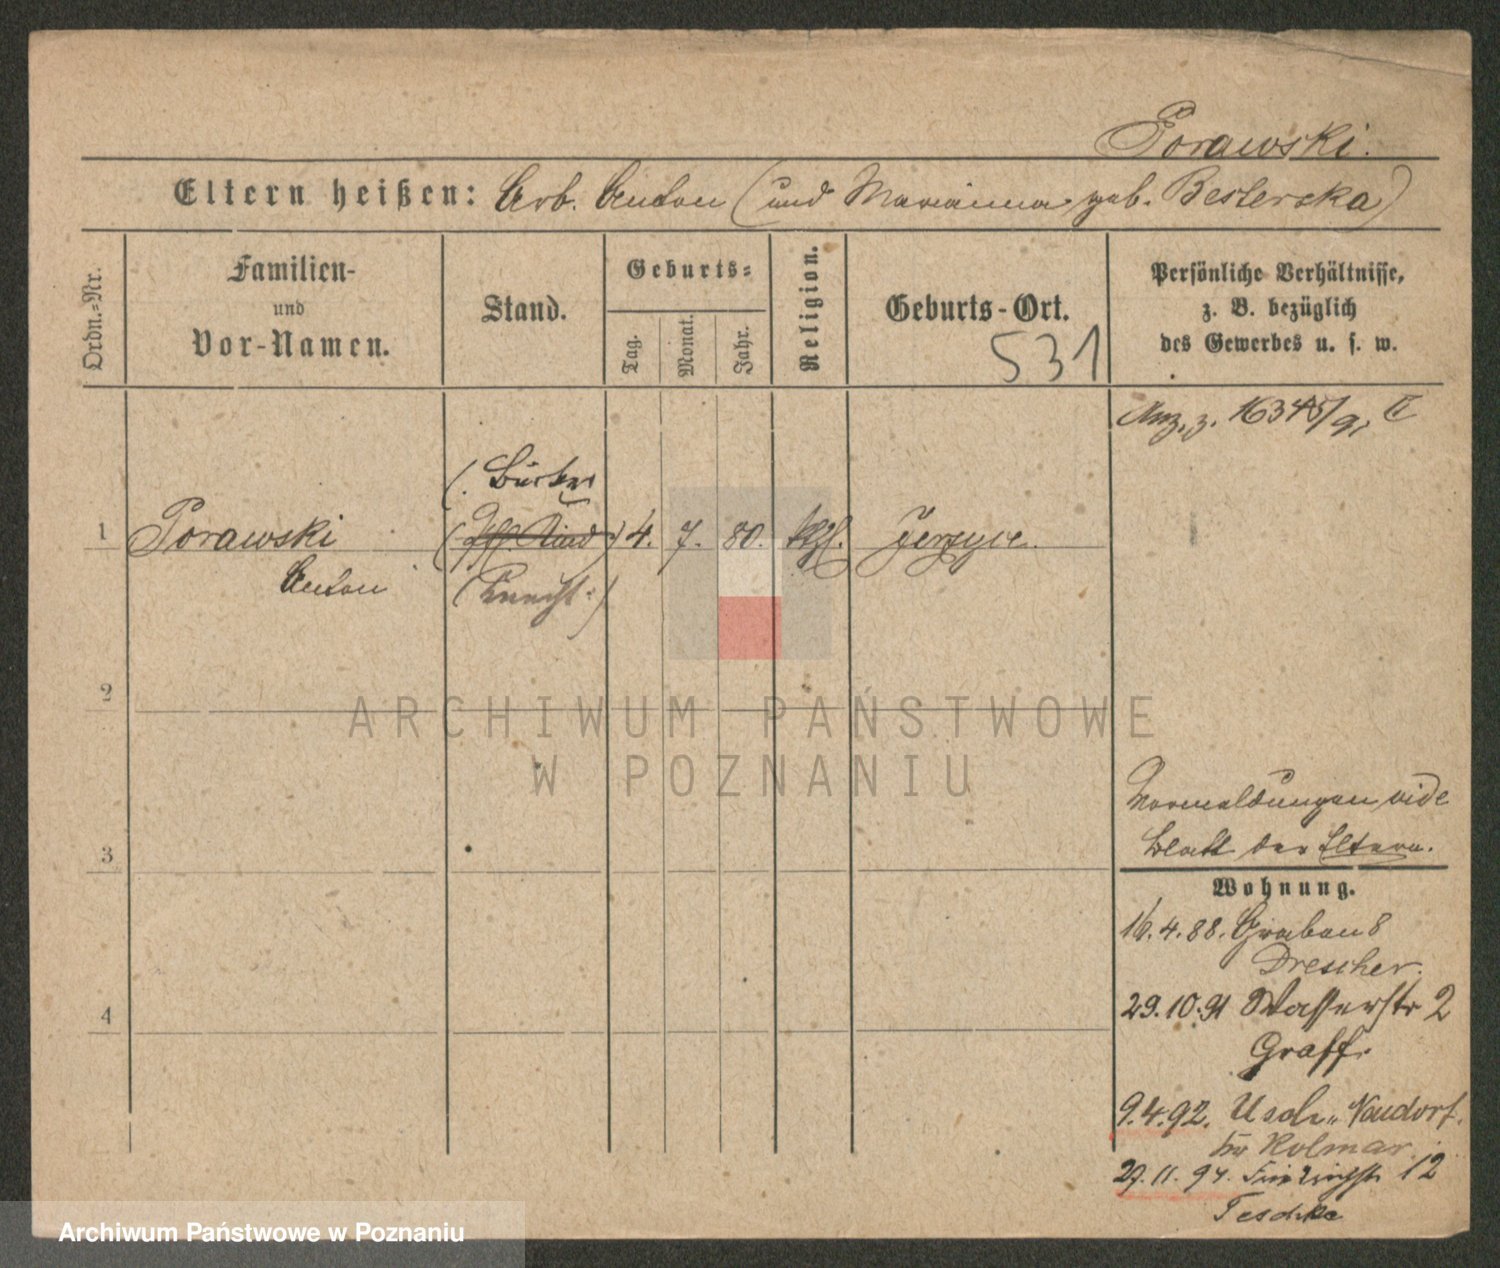 Porawski.
Eltern heißen: Arb. Anton (und Marianna geb. Besterzka)
Ordn.=Nr.
Familien-
und
Vor-Namen.
Stand.
Geburts=
Tag.
Monat.
Jahr.
Religion.
Geburts-Ort.
531
Persönliche Verhältnisse,
z. B. bezüglich
des Gewerbes u. s. w.
Anz. z. 16345/91 II
1 Porawski 4. 7. 80. kgl. Jerzyce.
Anton (Knecht.)
2
3
4
Vormeldungen vide
Blatt der Eltern.
Wohnung.
16.4.88. Graben 8
Drescher.
29.10.91 Wasserstr 2
Graff.
9.4.92. Usch-Neudorf.
Kr Kolmar.
29.11.94. 12
Teschke
ARCHIWUM PAŃSTWOWE
W POZNANIU
Archiwum Państwowe w Poznaniu